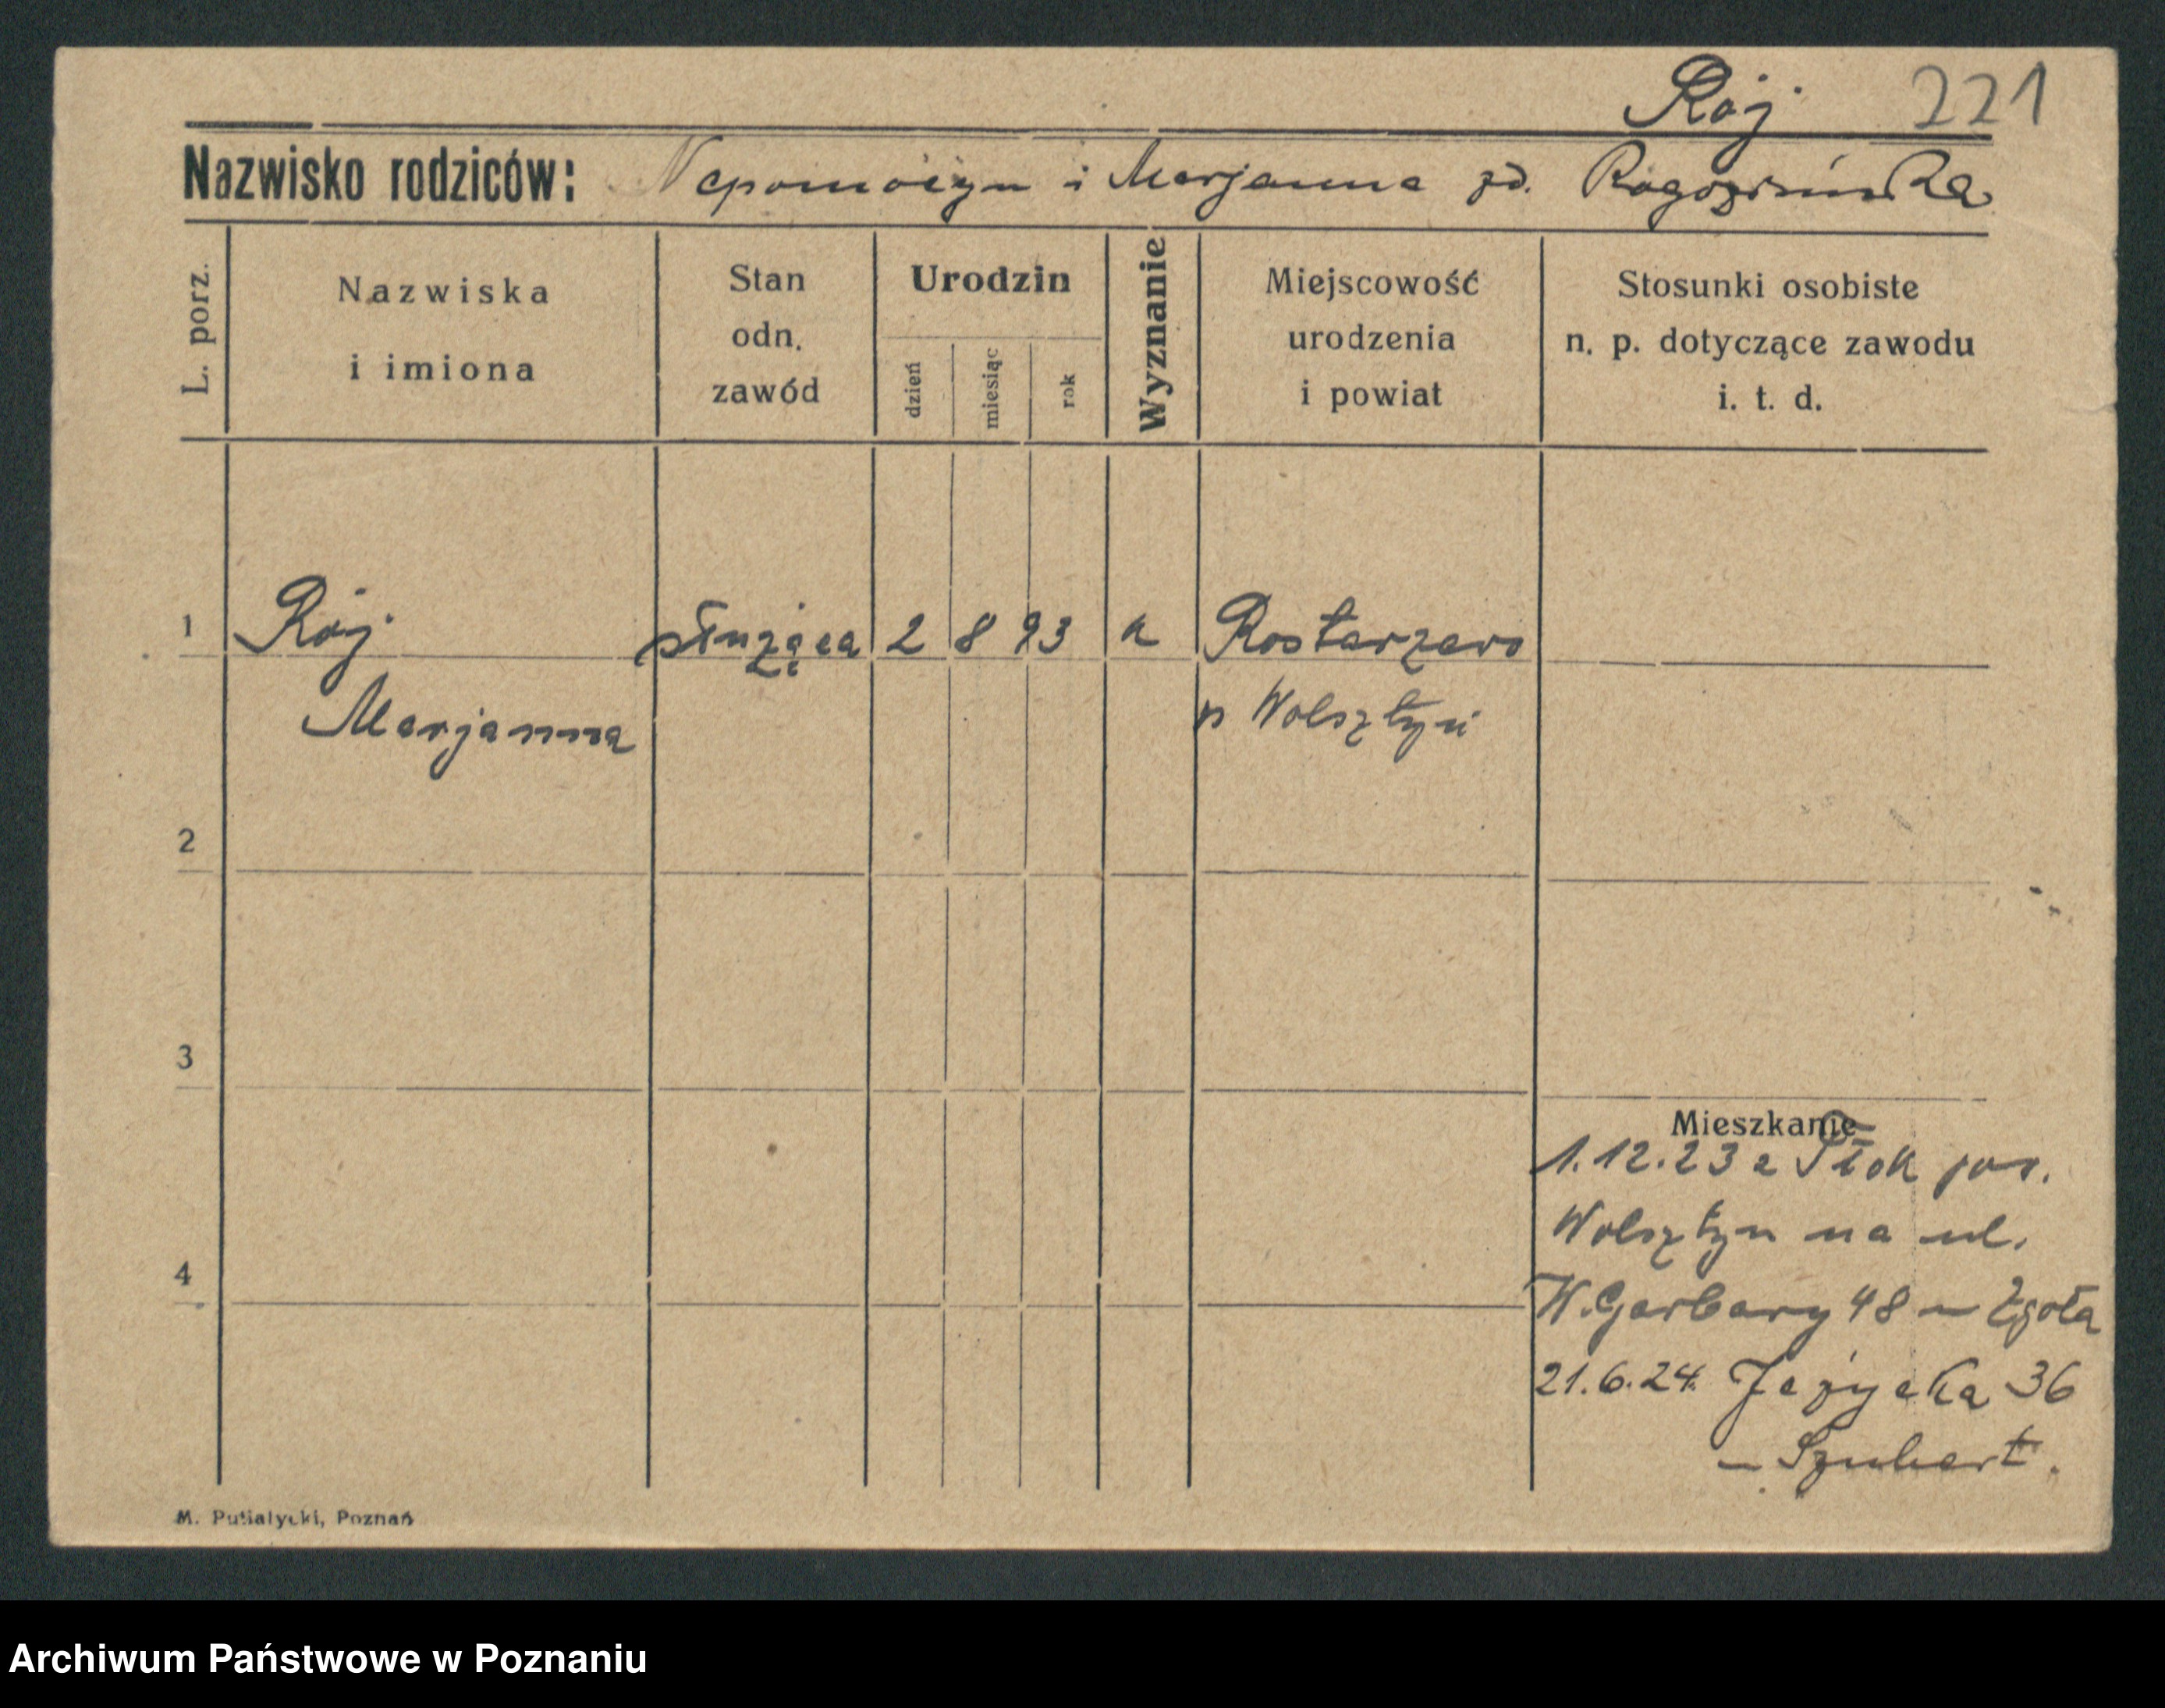 Rój 221
Nazwisko rodziców: Nepomócyn i Marjanna zd. Rogozińska
L. porz.
Nazwiska
i imiona
Stan
odn.
zawód
Urodzin
dzień
miesiąc
rok
Wyznanie
Miejscowość
urodzenia
i powiat
Stosunki osobiste
n. p. dotyczące zawodu
i. t. d.
1 Rój służąca 2 8 93 k Rostarzewo
Marjanna p Wolsztyń
2
3
4
Mieszkanie
1.12.23 z Tłok pow.
Wolsztyn na ul.
W. Garbary 48 –
21.6.24. Jeżycka 36
– Szubert.
M. Putiatycki, Poznań
Archiwum Państwowe w Poznaniu